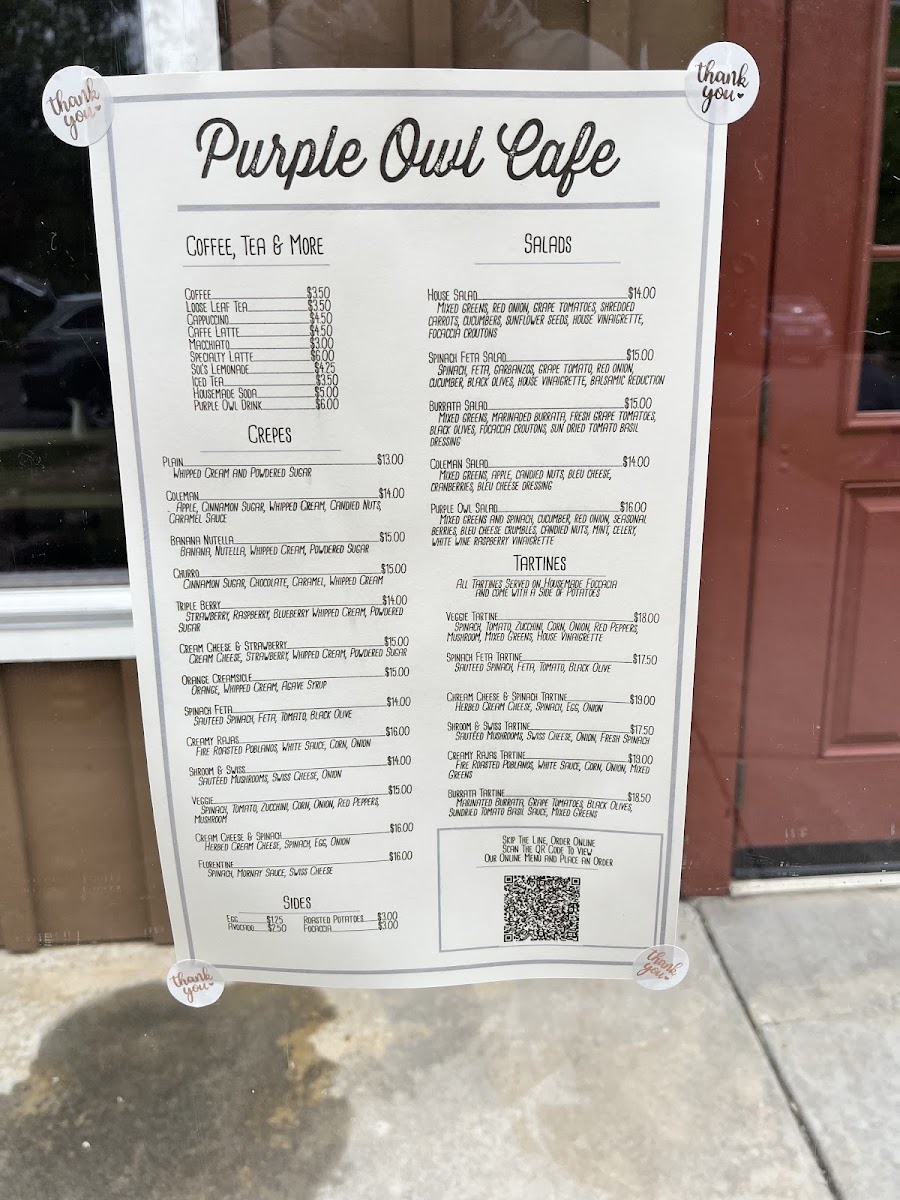 thank
you
thank
you
Purple Owl Cafe
COFFEE, TEA & MORE
COFFEE $3.50
LOOSE LEAF TEA $3.50
CAPPUCCINO $4.50
CAFFE LATTE $4.50
MACCHIATO $3.00
SPECIALTY LATTE $6.00
SOL'S LEMONADE $4.25
ICED TEA $3.50
HOUSEMADE SODA $5.00
PURPLE OWL DRINK $6.00
CREPES
PLAIN $13.00
WHIPPED CREAM AND POWDERED SUGAR
COLEMAN $14.00
APPLE, CINNAMON SUGAR, WHIPPED CREAM, CANDIED NUTS,
CARAMEL SAUCE
BANANA NUTELLA $15.00
BANANA, NUTELLA, WHIPPED CREAM, POWDERED SUGAR
CHURRO $15.00
CINNAMON SUGAR, CHOCOLATE, CARAMEL, WHIPPED CREAM
TRIPLE BERRY $14.00
STRAWBERRY, RASPBERRY, BLUEBERRY WHIPPED CREAM, POWDERED
SUGAR
CREAM CHEESE & STRAWBERRY $15.00
CREAM CHEESE, STRAWBERRY, WHIPPED CREAM, POWDERED SUGAR
ORANGE CREAMSICLE $15.00
ORANGE, WHIPPED CREAM, AGAVE SYRUP
SPINACH FETA $14.00
SAUTEED SPINACH, FETA, TOMATO, BLACK OLIVE
CREAMY RAJAS $16.00
FIRE ROASTED POBLANOS, WHITE SAUCE, CORN, ONION
SHROOM & SWISS $14.00
SAUTÉED MUSHROOMS, SWISS CHEESE, ONION
VEGGIE $15.00
SPINACH, TOMATO, ZUCCHINI, CORN, ONION, RED PEPPERS,
MUSHROOM
CREAM CHEESE & SPINACH $16.00
HERBED CREAM CHEESE, SPINACH, EGG, ONION
FLORENTINE $16.00
SPINACH, MORNAY SAUCE, SWISS CHEESE
SIDES
EGG $1.25 ROASTED POTATOES $3.00
AVOCADO $2.50 FOCACCIA $3.00
SALADS
HOUSE SALAD $14.00
MIXED GREENS, RED ONION, GRAPE TOMATOES, SHREDDED
CARROTS, CUCUMBERS, SUNFLOWER SEEDS, HOUSE VINAIGRETTE,
FOCACCIA CROUTONS
SPINACH FETA SALAD $15.00
SPINACH, FETA, GARBANZOS, GRAPE TOMATO, RED ONION,
CUCUMBER, BLACK OLIVES, HOUSE VINAIGRETTE, BALSAMIC REDUCTION
BURRATA SALAD $15.00
MIXED GREENS, MARINADED BURRATA, FRESH GRAPE TOMATOES,
BLACK OLIVES, FOCACCIA CROUTONS, SUN DRIED TOMATO BASIL
DRESSING
COLEMAN SALAD $14.00
MIXED GREENS, APPLE, CANDIED NUTS, BLEU CHEESE,
CRANBERRIES, BLEU CHEESE DRESSING
PURPLE OWL SALAD $16.00
MIXED GREENS AND SPINACH, CUCUMBER, RED ONION, SEASONAL
BERRIES, BLEU CHEESE CRUMBLES, CANDIED NUTS, MINT, CELERY,
WHITE WINE RASPBERRY VINAIGRETTE
TARTINES
ALL TARTINES SERVED ON HOUSEMADE FOCCACIA
AND COME WITH A SIDE OF POTATOES
VEGGIE TARTINE $18.00
SPINACH, TOMATO, ZUCCHINI, CORN, ONION, RED PEPPERS,
MUSHROOM, MIXED GREENS, HOUSE VINAIGRETTE
SPINACH FETA TARTINE $17.50
SAUTEED SPINACH, FETA, TOMATO, BLACK OLIVE
CHREAM CHEESE & SPINACH TARTINE $19.00
HERBED CREAM CHEESE, SPINACH, EGG, ONION
SHROOM & SWISS TARTINE $17.50
SAUTÉED MUSHROOMS, SWISS CHEESE, ONION, FRESH SPINACH
CREAMY RAJAS TARTINE $19.00
FIRE ROASTED POBLANOS, WHITE SAUCE, CORN, ONION, MIXED
GREENS
BURRATA TARTINE $18.50
MARINATED BURRATA, GRAPE TOMATOES, BLACK OLIVES,
SUNDRIED TOMATO BASIL SAUCE, MIXED GREENS
SKIP THE LINE, ORDER ONLINE
SCAN THE QR CODE TO VIEW
OUR ONLINE MENU AND PLACE AN ORDER
thank
you
thank
you